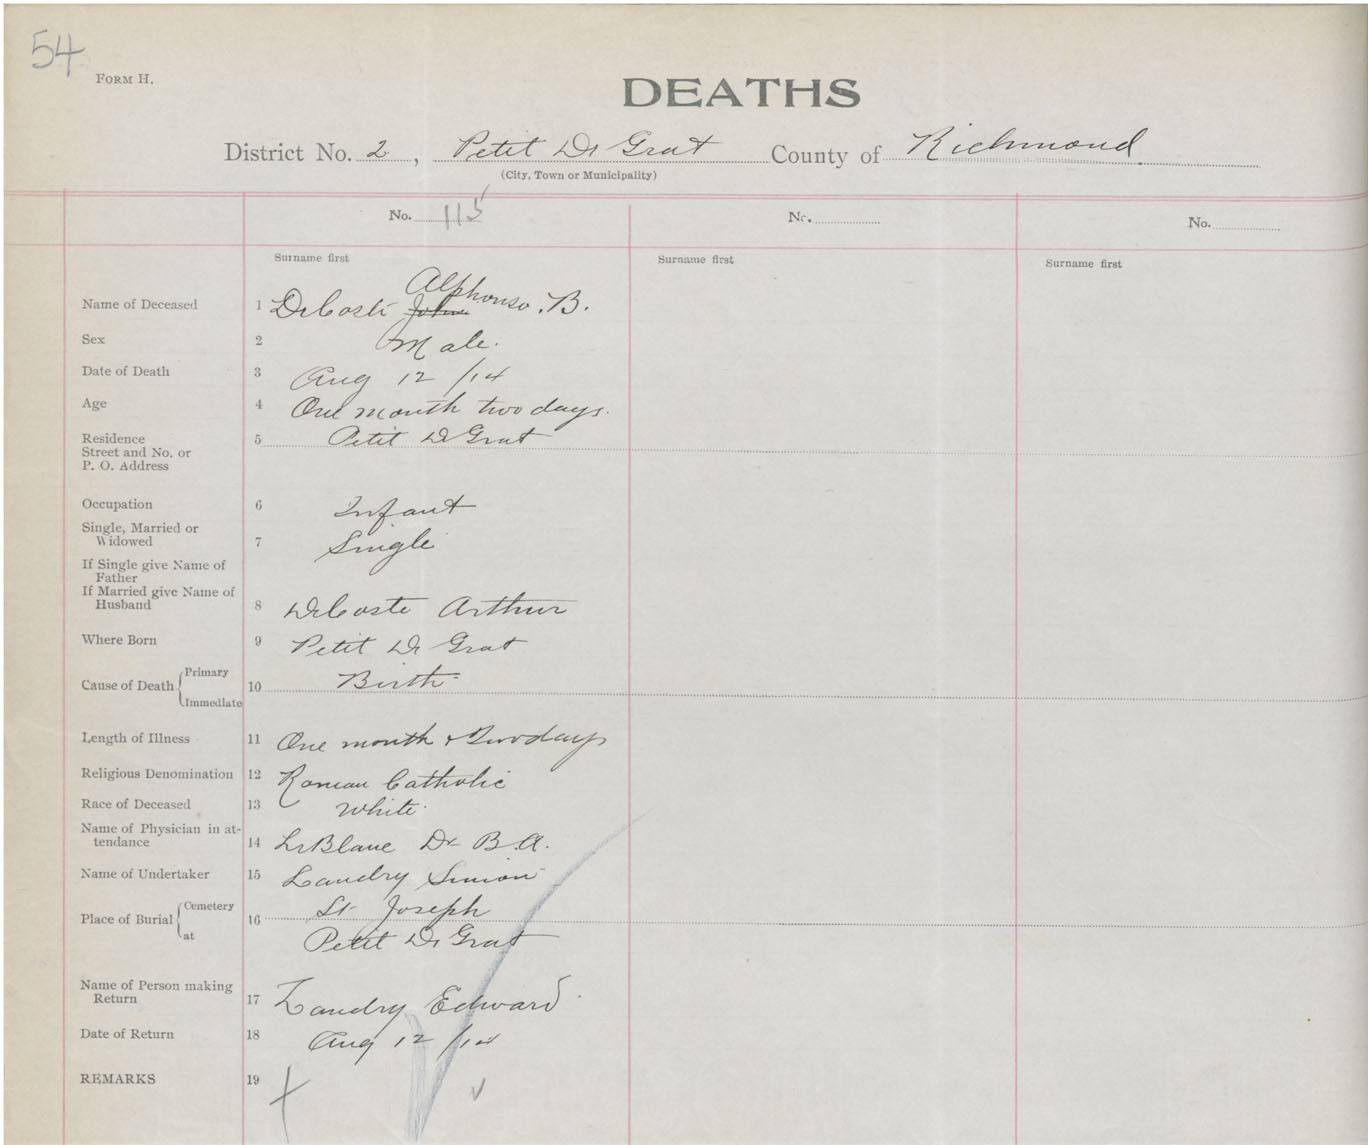 54
FORM H.
DEATHS
District No. 2, Petit De Grat County of Richmond
(City, Town or Municipality)
No. 115 No. No.
Surname first Surname first Surname first
Name of Deceased 1 DeCoste John Alphonso. B.
Sex 2 Male.
Date of Death 3 Aug 12 /14
Age 4 One month two days.
Residence 5 Petit De Grat
Street and No. or
P. O. Address
Occupation 6 Infant
Single, Married or
Widowed 7 Single
If Single give Name of
Father
If Married give Name of
Husband 8 DeCoste Arthur
Where Born 9 Petit De Grat
Cause of Death Primary Immediate 10 Birth
Length of Illness 11 One month & Two days
Religious Denomination 12 Roman Catholic
Race of Deceased 13 White
Name of Physician in at-
tendance 14 LeBlanc Dr B.A.
Name of Undertaker 15 Landry Simion
Place of Burial Cemetery at 16 St Joseph
Petit De Grat
Name of Person making
Return 17 Landry Edward
Date of Return 18 Aug 12 /14
REMARKS 19